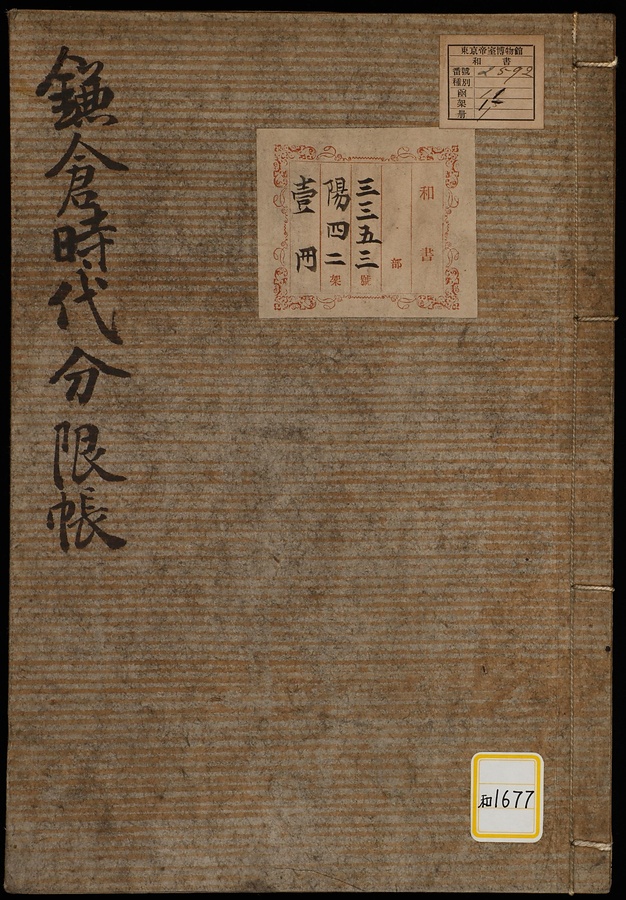 鎌倉時代分限帳
東京帝室博物館
和書
番號 2592
種別
函
架
冊
和書
部
三三五三號
陽四二架
壹冊
和1677